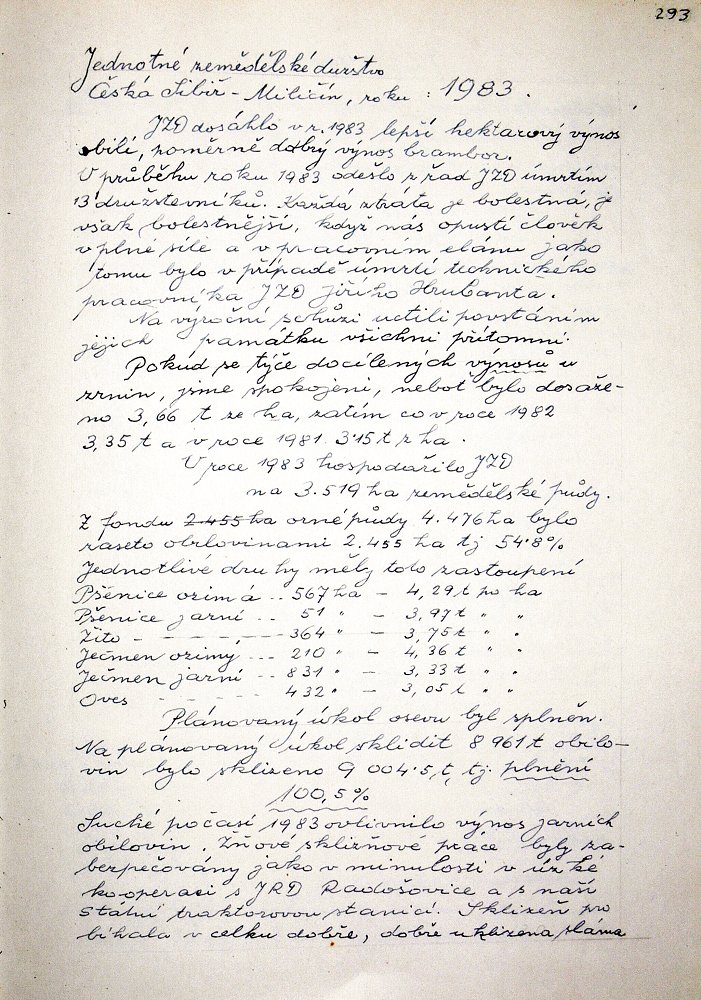 293
Jednotné zemědělské družstvo
Česká Sibiř - Miličín, roku : 1983.
JZD dosáhlo v r. 1983 lepší hektarový výnos
obilí, poměrně dobrý výnos brambor.
V průběhu roku 1983 odešlo z řad JZD úmrtím
13 družstevníků. Každá ztráta je bolestná, je
však bolestnější, když nás opustí člověk
v plné síle a v pracovním elánu jako
tomu bylo v případě úmrtí technického
pracovníka JZD Jiřího Hrubanta.
Na výroční schůzi uctili povstáním
jejich památku všichni přítomní.
Pokud se týče docílených výnosů u
zrnin, jsme spokojeni, neboť bylo dosaže-
no 3,66 t ze ha, zatím co v roce 1982
3,35 t a v roce 1981 3.15 t z ha.
V roce 1983 hospodařilo JZD
na 3.519 ha zemědělské půdy.
Z fondu 2.455 ha orné půdy 4.476 ha bylo
zaseto obilovinami 2.455 ha tj 54.8%
Jednotlivé druhy měly toto zastoupení
Pšenice ozimá .. 567 ha - 4,29 t po ha
Pšenice jarní .. 51 " - 3,97 t " "
Žito - - - - - - 364 " - 3,75 t " "
Ječmen ozimý ... 210 " - 4,36 t " "
Ječmen jarní .. 831 " - 3,33 t " "
Oves - - - - - 432 " - 3,05 t " "
Plánovaný úkol osevu byl splněn.
Na plánovaný úkol sklidit 8 961 t obilo-
vin bylo sklizeno 9 004.5, t, tj. plnění
100,5%
Suché počasí 1983 ovlivnilo výnos jarních
obilovin. Žňové sklizňové práce byly za-
bezpečovány jako v minulosti v úzké
kooperaci s JRD Radošovice a s naší
Státní traktorovou stanicí. Sklizeň pro
bíhala v celku dobře, dobře uklizena sláma